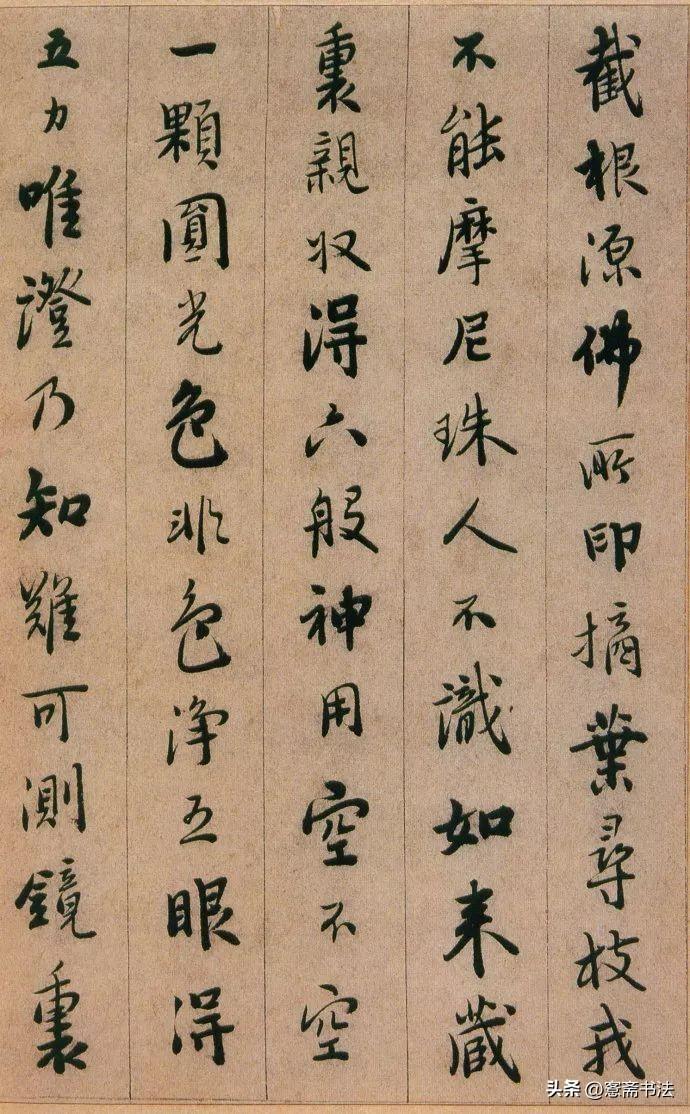 截根源佛所印摘葉尋枝我
不能摩尼珠人不識如来藏
裏親収得六般神用空不空
一顆圓光色非色净五眼得
五力唯證乃知難可測鏡裏
头条 @愙斋书法